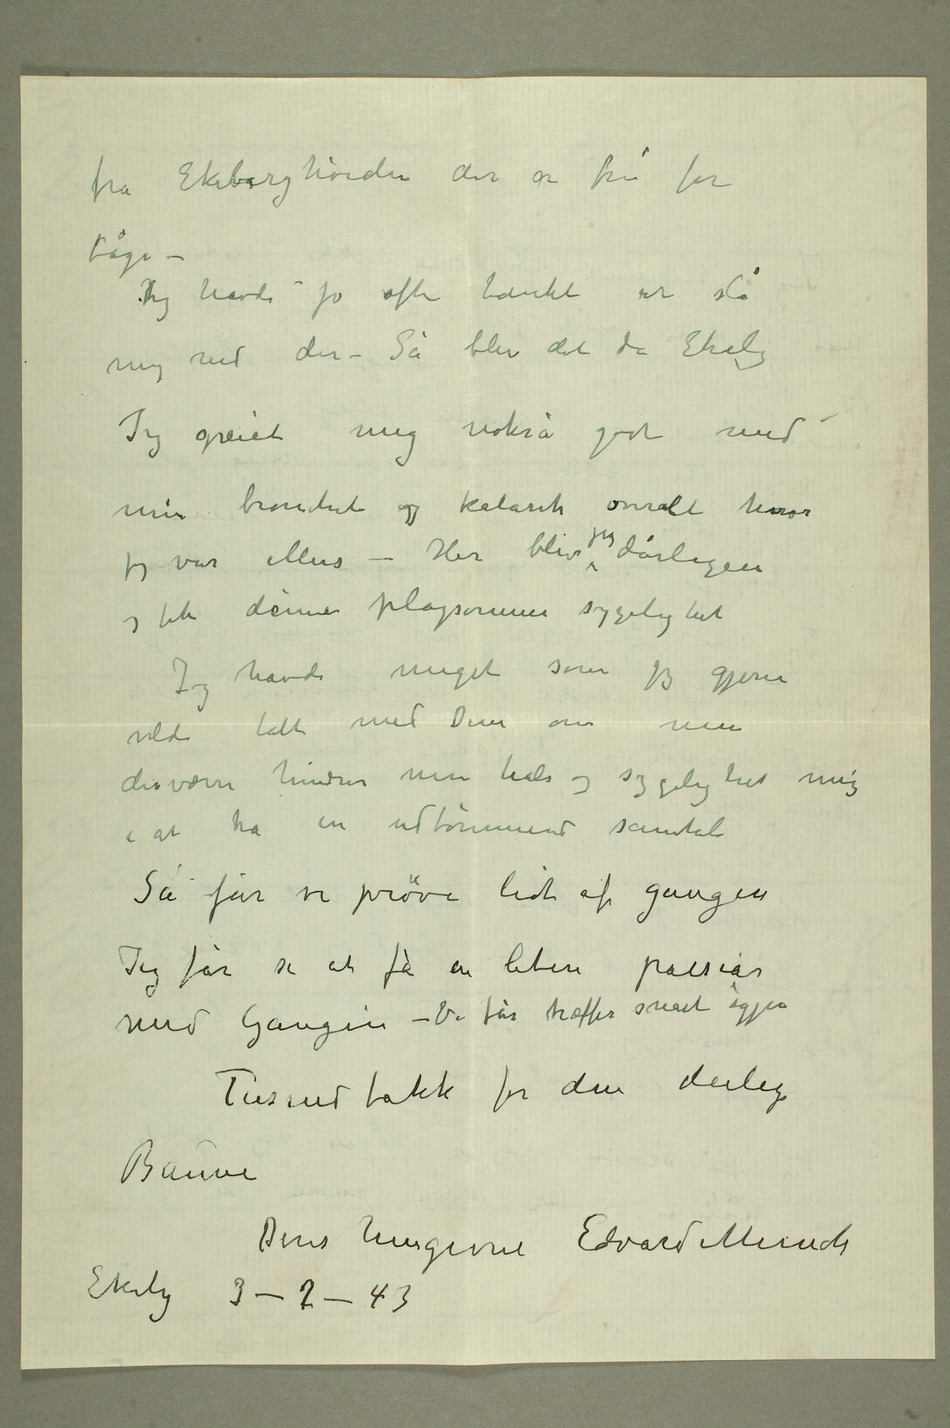 fra Ekeberghöiden der er fri for
tåge –
Jeg havde jo ofte tænkt at slå
mig ned der – Så blev det da Ekely
Jeg greiet mig nokså godt med
min bronchit og katarrh overalt hvor
jeg var ellers – Her blev jeg dårligere
og fik denne plagsomme sygelighet
Jeg havde meget som jeg gjerne
vilde talt med Dem om men
desværre hindrer min hals og sygelighet mig
i at ha en udtømmend samtale
Så får vi pröve lidt af gangen
Jeg får se at få en liten passiar
med Gangen – Vi får træffes snart igjen
Tusind takk for den deilige
Deres hengivne Edvard Munch
Ekely 3–2–43